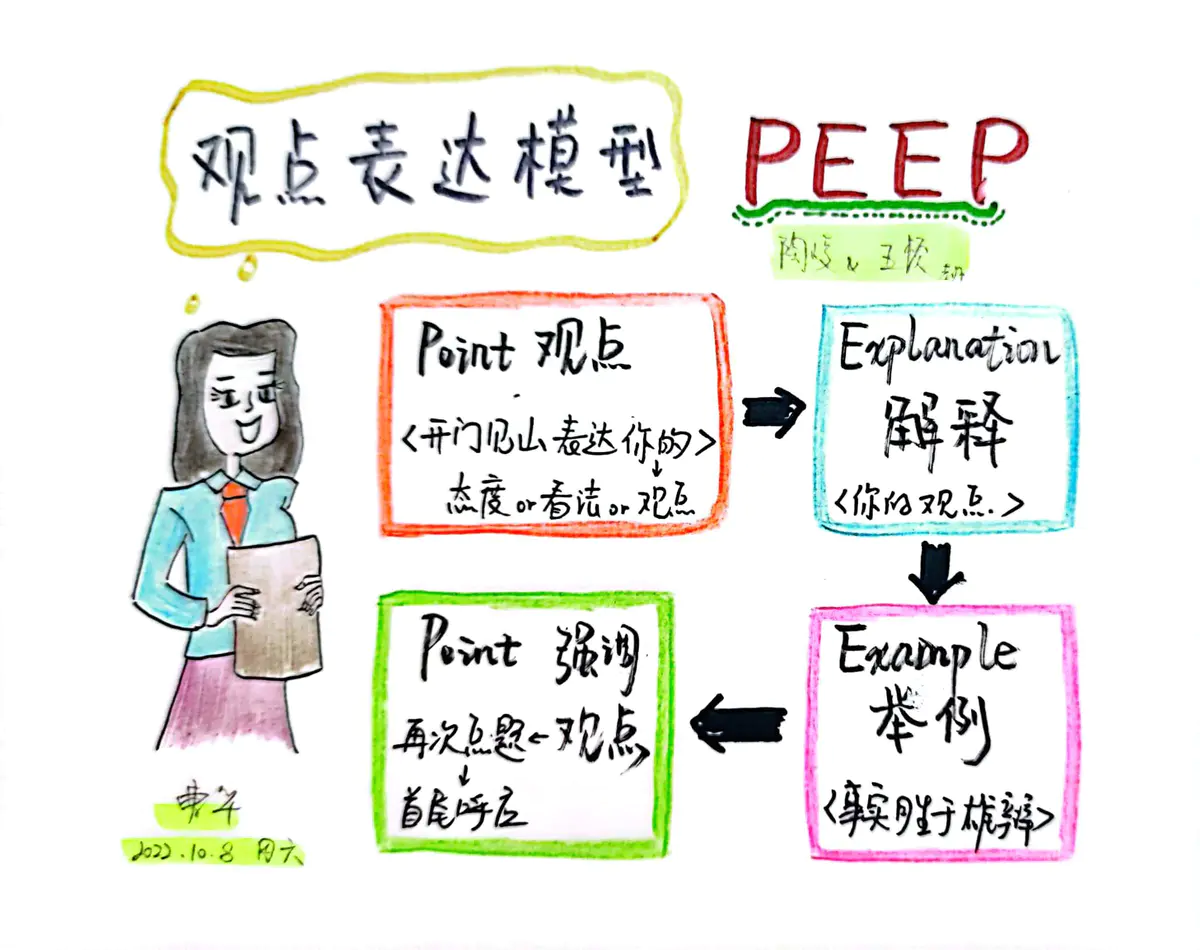 观点表达模型
PEEP
Point 观点
<开门见山表达你的>
↓
态度or看法or观点
Explanation
解释
<你的观点.>
Example
举例
<事实胜于雄辩>
Point 强调
再次点题←观点
↓
首尾呼应
2022.10.8 周六